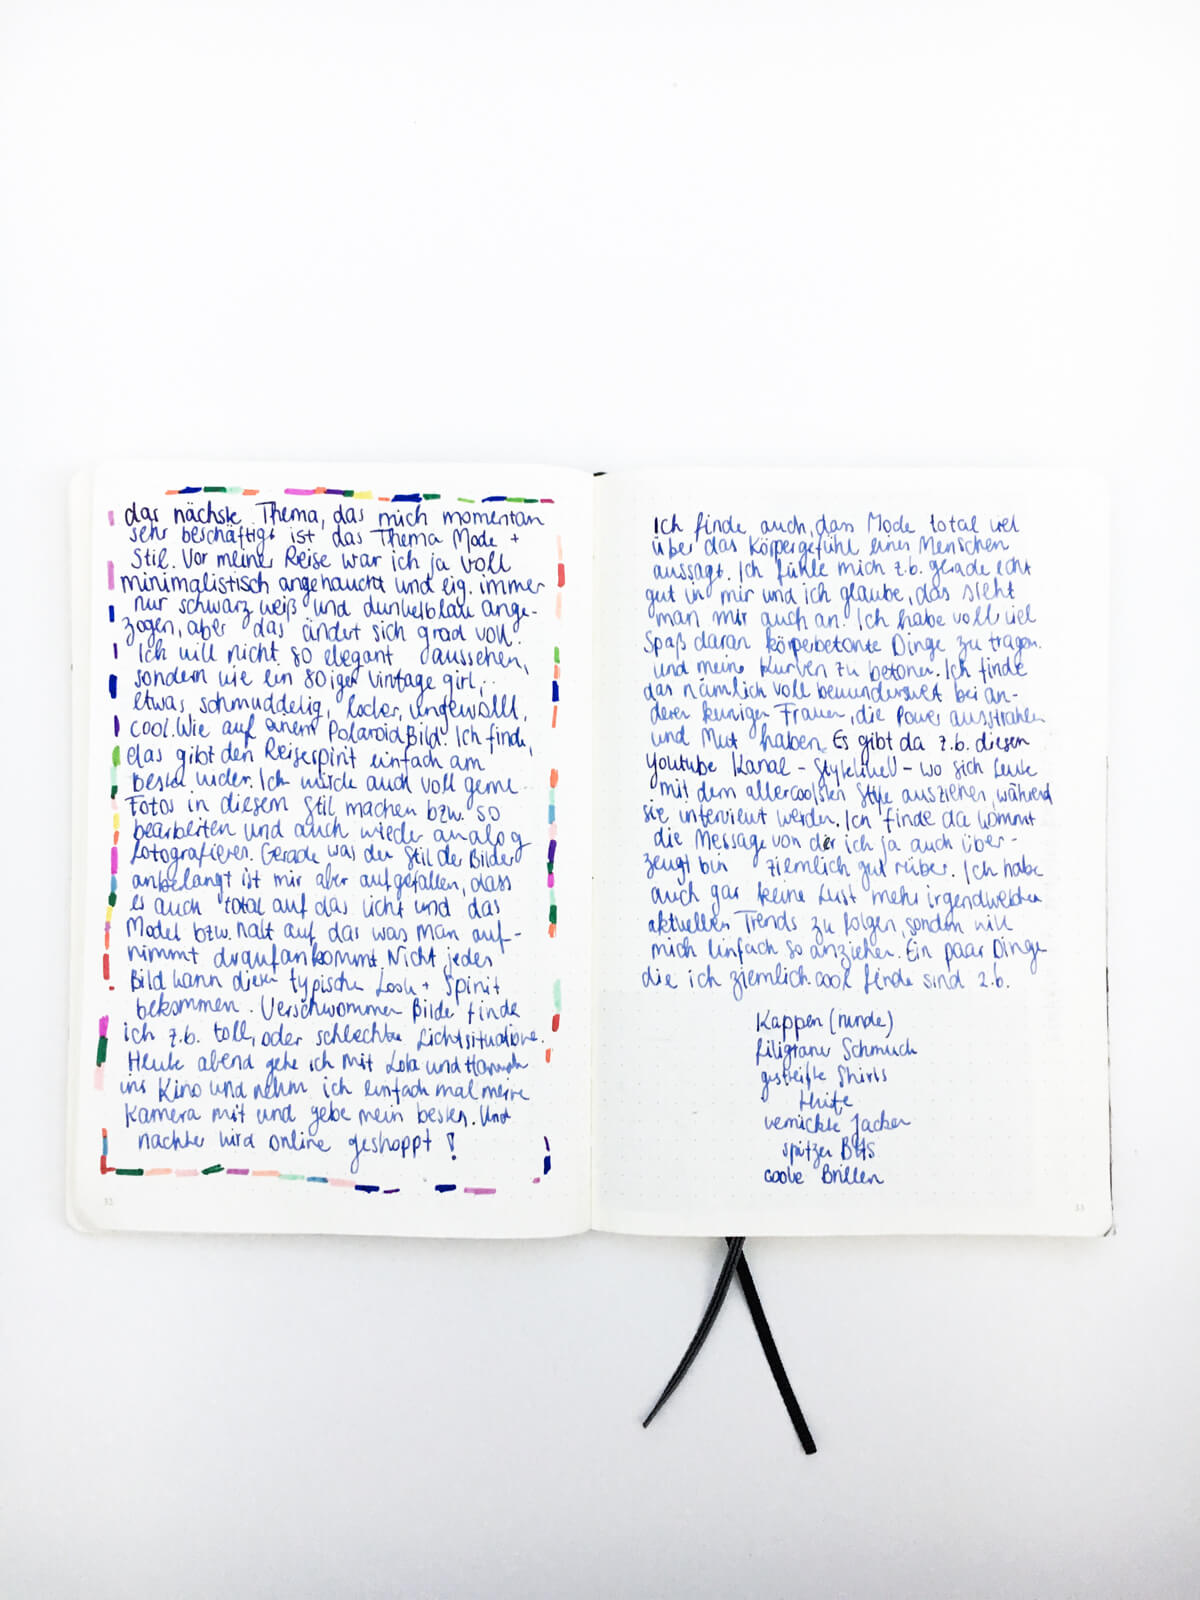 das nächste Thema, das mich momentan
sehr beschäftigt ist das Thema Mode +
Stil. Vor meiner Reise war ich ja voll
minimalistisch angehaucht und eig. immer
nur schwarz weiß und dunkelblau ange-
zogen, aber das ändert sich grad voll.
Ich will nicht so elegant aussehen,
sondern wie ein 80iger vintage girl,
etwas schmuddelig, locker, ungewollt,
cool. Wie auf einem Polaroid Bild. Ich finde,
das gibt den Reisespirit einfach am
besten wider. Ich würde auch voll gerne
Fotos in diesem Stil machen bzw. so
bearbeiten und auch wieder analog
fotografieren. Gerade was den Stil der Bilder
anbelangt ist mir aber aufgefallen, dass
es auch total auf das Licht und das
Model bzw. halt auf das was man auf-
nimmt draufankommt. Nicht jedes
Bild kann diesen typischen Look + Spirit
bekommen. Verschwommene Bilder finde
ich z.b. toll, oder schlechte Lichtsituationen.
Heute abend gehe ich mit Lola und Hannah
ins Kino und nehm ich einfach mal meine
Kamera mit und gebe mein bestes. Und
nachher wird online geshoppt!
32
Ich finde auch, dass Mode total viel
über das Körpergefühl eines Menschen
aussagt. Ich fühle mich z.b. gerade echt
gut in mir und ich glaube, das sieht
man mir auch an. Ich habe voll viel
Spaß daran körperbetonte Dinge zu tragen
und meine Kurven zu betonen. Ich finde
das nämlich voll bewundernswert bei an-
deren kurvigen Frauen, die Power ausstrahlen
und Mut haben. Es gibt da z.b. diesen
Youtube Kanal - StyleLikeU - wo sich Leute
mit dem allercoolsten Style ausziehen, während
sie interviewt werden. Ich finde da kommt
die Message von der ich ja auch über-
zeugt bin ziemlich gut rüber. Ich habe
auch gar keine Lust mehr irgendwelchen
aktuellen Trends zu folgen, sondern will
mich einfach so anziehen. Ein paar Dinge
die ich ziemlich cool finde sind z.b.
Kappen (runde)
filigraner Schmuck
gestreifte Shirts
Hüte
verrückte Jacken
spitzen BHs
coole Brillen
33